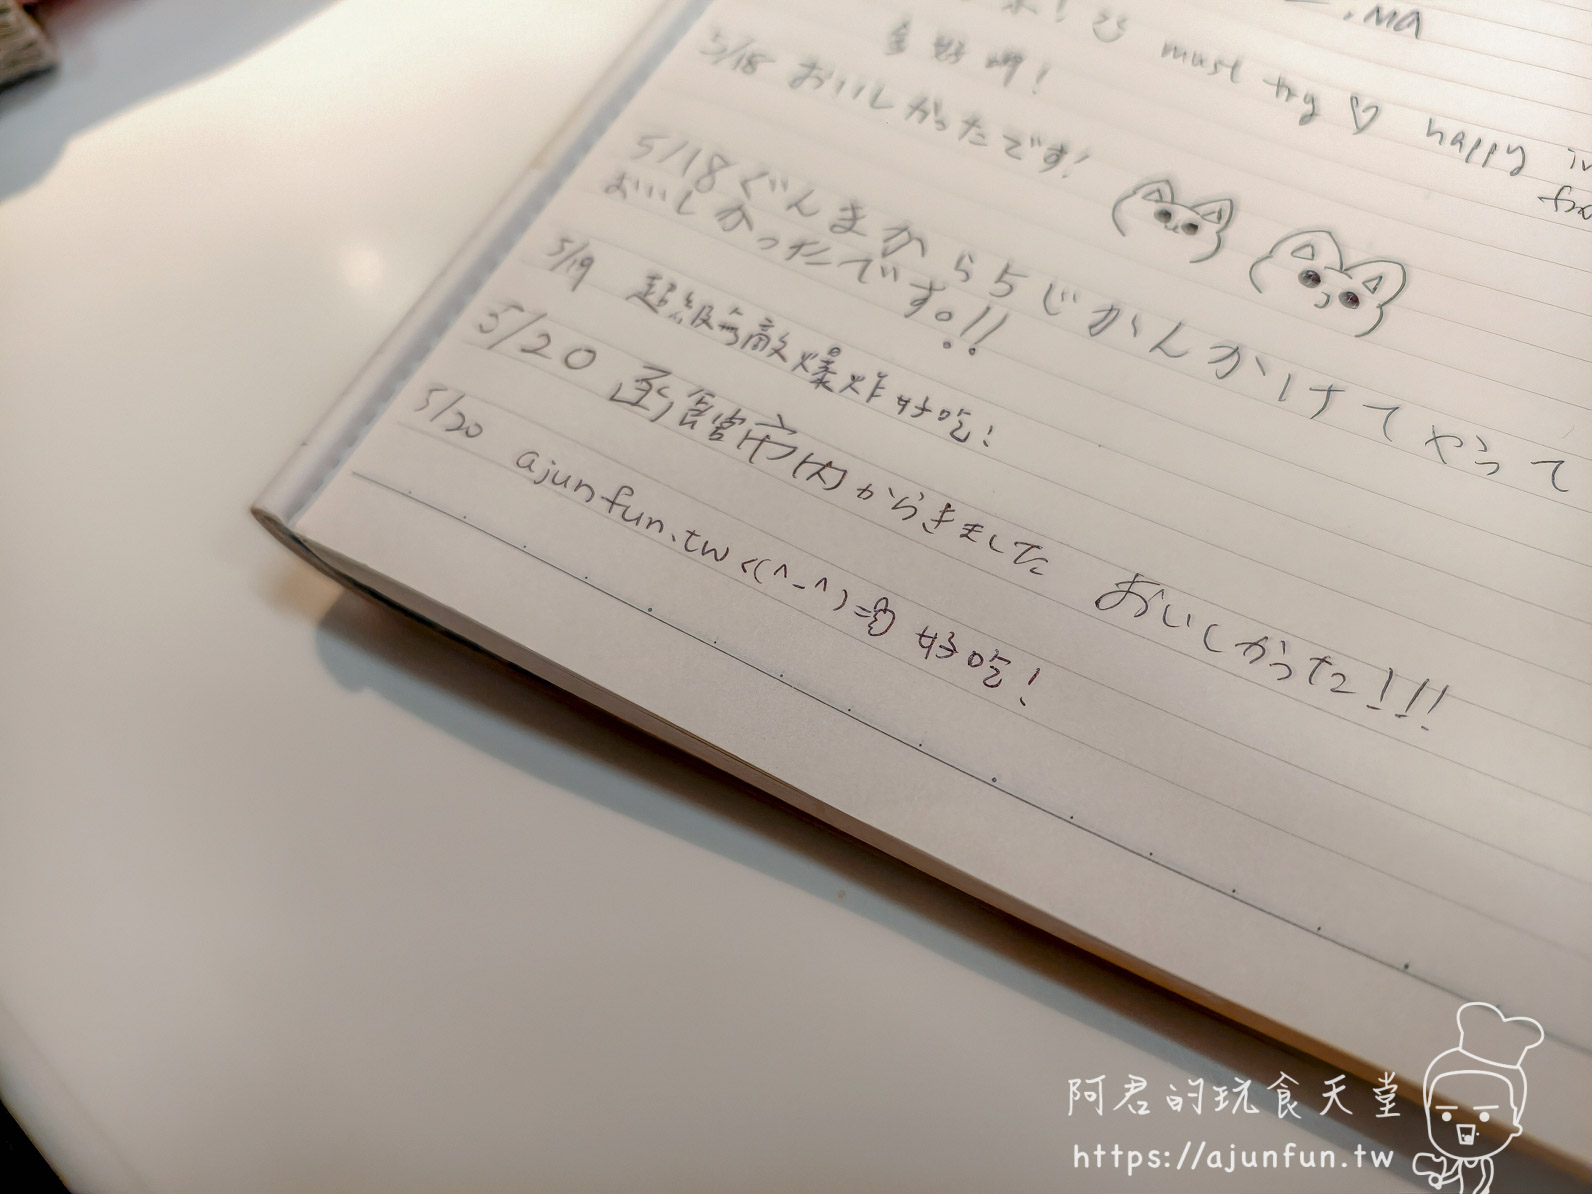 MA
! must try ♡ happy
好 !
5/18 おいしかったです!
5/18 ぐんまから5じかんかけてやって
おいしかったです。!!
5/19 超級無敵爆炸好吃!
5/20 函館市内からきました おいしかった!!!
5/20 ajunfun.tw <(^-^)= 好吃!
阿君的玩食天堂
https://ajunfun.tw